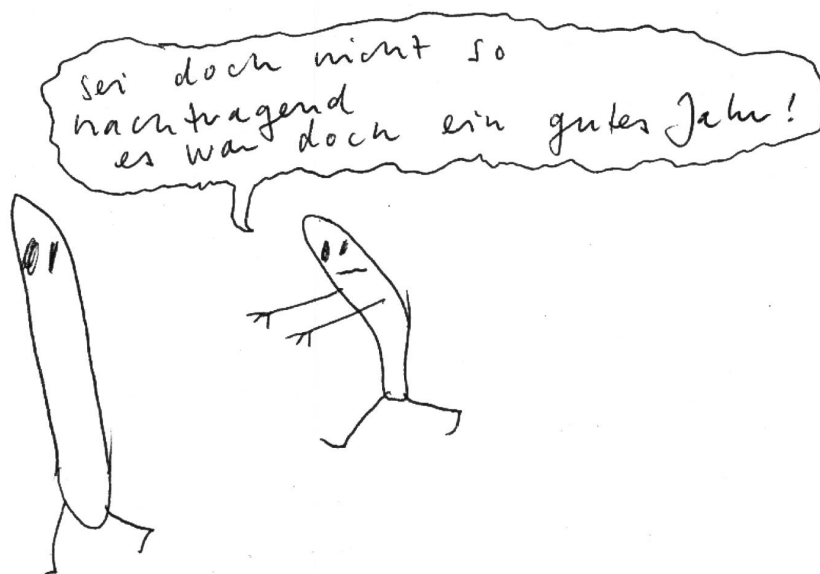 sei doch nicht so
nachtragend
es war doch ein gutes Jahr!